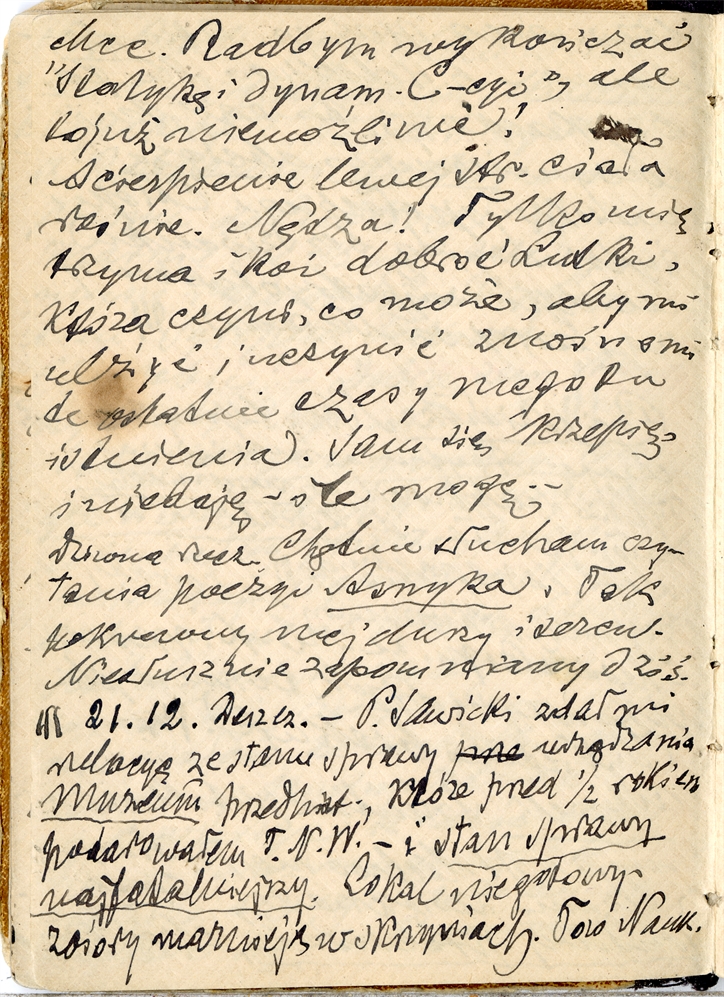 chce. Radbym wykończać
"Statykę i dynam. C-cyi", ale
to już niemożliwe!
Ścierpienie lewej str. ciała
rośnie. Nędza! Tylko mię
trzyma i koi dobroć Lutki,
która czyni, co może, aby mi
ulżyć i uczynić znośnemi
te ostatnie czasy mego tu
istnienia. Sam się krzepię
i nie daję – ile mogę –
Dziwna rzecz. Chętnie słucham czy-
tania poezyi Asnyka. Tak
pokrewny mej duszy i sercu.
Niesłusznie zapomniany dziś.
21.12. Deszcz. – P. Sawicki zdał mi
relacyę ze stanu sprawy urządzania
Muzeum przedhist., które przed ½ rokiem
podarowałem T.N.W. – i stan sprawy
najfatalniejszy. Lokal niegotowy
zbiory marnieją w skrzyniach. Tow Nauk.